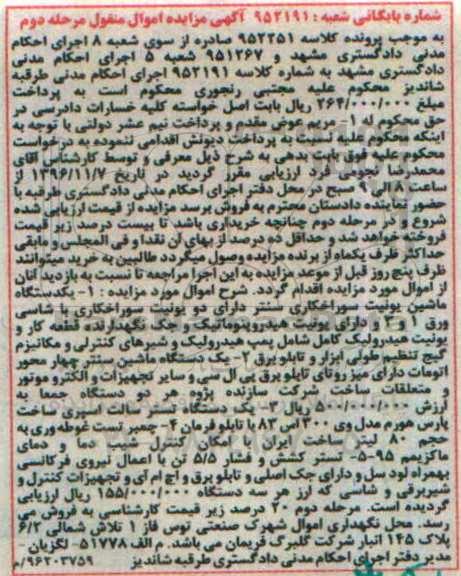 شماره بایگانی شعبه : ۹۵۲۱۹۱ آگهی مزایده اموال منقول مرحله دوم
به موجب پرونده کلاسه ۹۵۲۲۵۱ صادره از سوی شعبه ۸ اجرای احکام
مدنی دادگستری مشهد و ۹۵۱۲۶۷ شعبه ۵ اجرای احکام مدنی
دادگستری مشهد به شماره کلاسه ۹۵۲۱۹۱ اجرای احکام مدنی طرقبه
شاندیز محکوم علیه مجتبی رنجوری محکوم است به پرداخت
مبلغ ۲۶۴/۰۰۰/۰۰۰ ریال بابت اصل خواسته کلیه خسارات دادرسی در
حق محکوم له ۱- مریم عوض مقدم و پرداخت نیم عشر دولتی با توجه به
اینکه محکوم علیه نسبت به پرداخت دیونش اقدامی ننموده به درخواست
محکوم علیه فوق بابت بدهی به شرح ذیل معرفی و توسط کارشناس آقای
محمدرضا نجومی فرد ارزیابی مقرر گردید در تاریخ ۱۳۹۶/۱۱/۷ از
ساعت ۸ الی ۹ صبح در محل دفتر اجرای احکام مدنی دادگستری طرقبه با
حضور نماینده دادستان محترم به فروش برسد مزایده از قیمت ارزیابی شده
شروع و در مرحله دوم چنانچه خریداری باشد تا بیست درصد زیر قیمت
فروخته خواهد شد و حداقل ده درصد از بهای آن نقدا و فی المجلس و مابقی
حداکثر ظرف یکماه از برنده مزایده وصول میگردد طالبین به خرید میتوانند
ظرف پنج روز قبل از موعد مزایده به این اجرا مراجعه تا نسبت به بازدید آنان
از اموال مورد مزایده اقدام گردد. شرح اموال مورد مزایده : ۱- یکدستگاه
ماشین یونیت سوراخکاری سنتر دارای دو یونیت سوراخکاری با شاسی
ورق و دارای یونیت هیدروپنوماتیک و جک نگهدارنده قطعه کار و
یونیت هیدرولیک کامل شامل پمپ هیدرولیک و شیرهای کنترلی و مکانیزم
گیج تنظیم طولی ابزار و تابلو برق ۲- یک دستگاه ماشین سنتر چهار محور
اتومات دارای میز روتای تابلو برق پی ال سی و سایر تجهیزات و الکترو موتور
و متعلقات ساخت شرکت سازنده پژوه هر دو دستگاه جمعا به
ارزش ۵۰۰/۰۰۰/۰۰۰ ریال ۳- یک دستگاه تستر سالت اسپری ساخت
پارس هورم مدل وی ۳۰۰ اس ۸ با تابلو فرمان ۴- چمبر تست غوطه وری به
حجم ۸۰ لیتر ساخت ایران با امکان کنترل شیب دما و دمای
ماکزیمم ۹۵ ۵- تستر کشش و فشار ۵/۵ تن با اعمال نیروی فرکانسی
بهمراه لود سل و دارای جک اصلی و تابلو برق و اچ ام آی و تجهیزات کنترل و
شیر برقی و شاسی که ارز هر سه دستگاه ۱۵۵/۰۰۰/۰۰۰ ریال ارزیابی
گردیده است. مرحله دوم ۲۰ درصد زیر قیمت کارشناسی به فروش می
رسد. محل نگهداری اموال شهرک صنعتی توس فاز ۱ تلاش شمالی ۶/۲
پلاک ۱۴۵ انبار شرکت گلبرگ فریمان می باشد. م الف ۵۱۷۷۸- لگزیان -
مدیر دفتر اجرای احکام مدنی دادگستری طرقبه شاندیز ۹۶۲۰۳۷۵۹/م